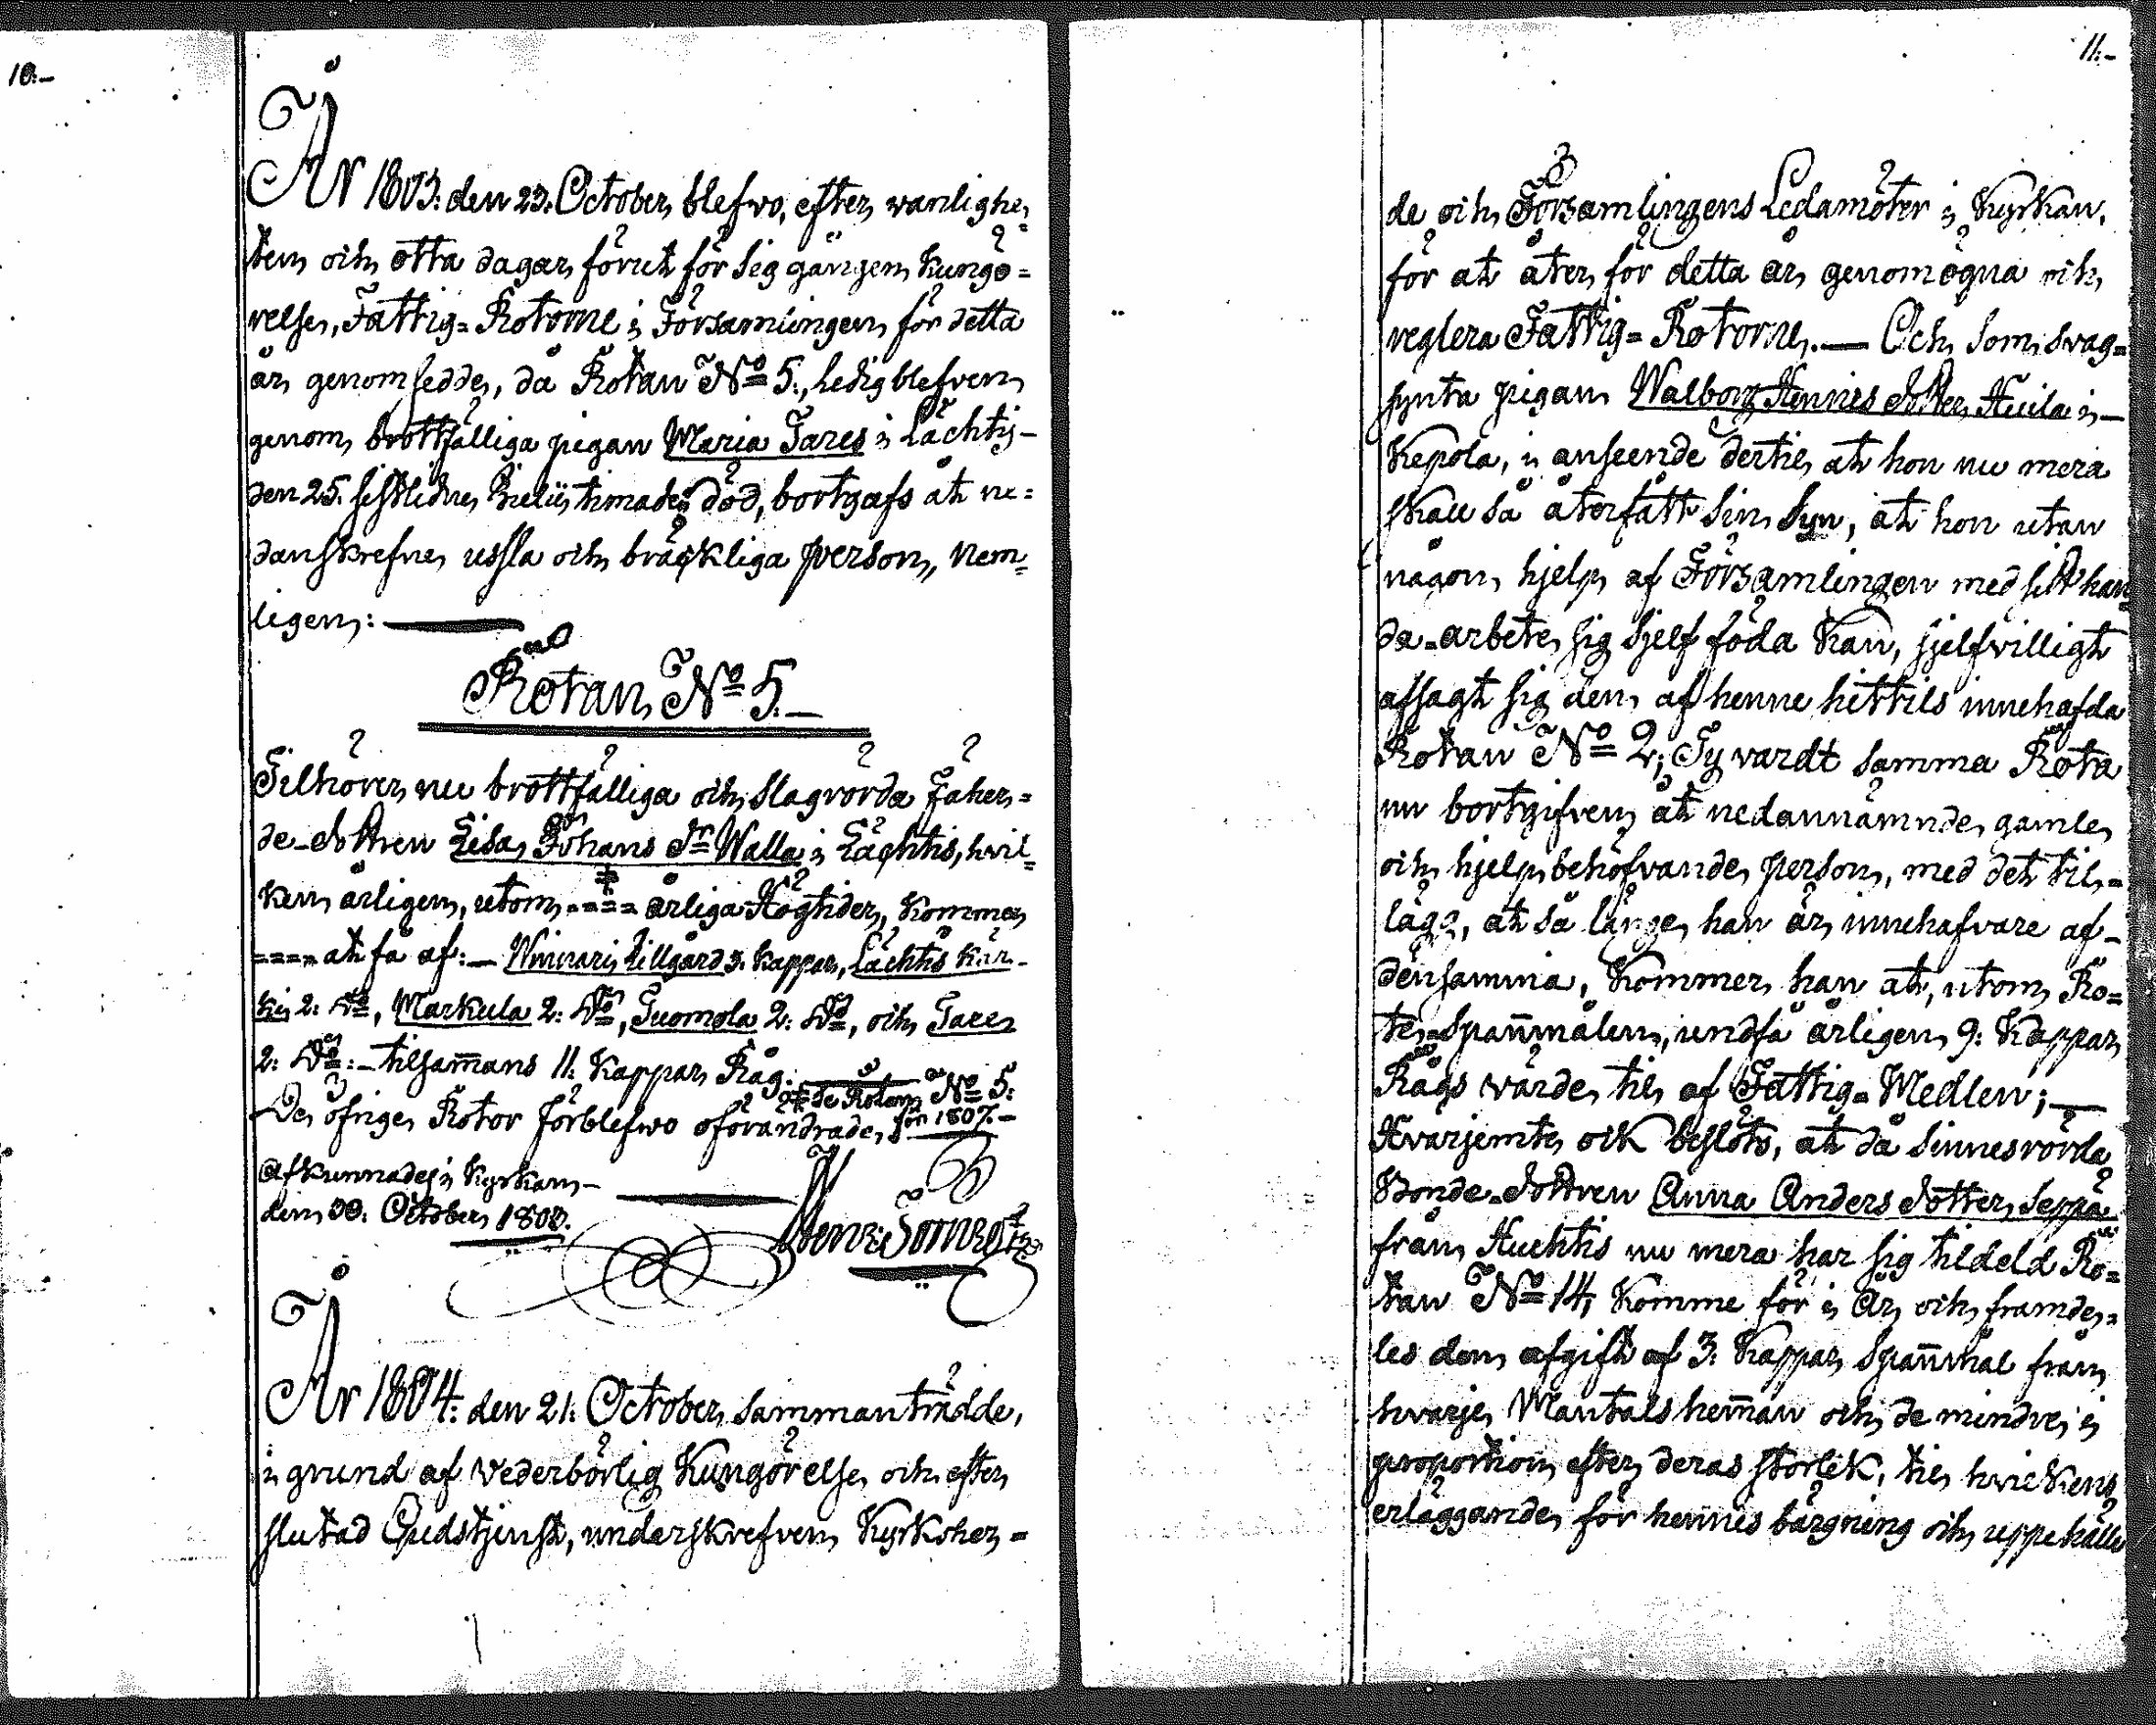 10.-
År 1803. den 23. October, blefwo, efter wanlighe-
ten och otta dagar förut för sig gången Kungö-
relse, Fattig-Rotorne i Församlingen för detta
år genomsedde, då Rotan No 5., ledig blefven
genom brottfälliga pigan Maria Tares i Lächtis-
den 25. sistledne Julii timade död, bortgafs åt ne-
danskrefne ussla och bräckliga person, nem-
ligen:—
Rotan No 5.-
Tilhörer nu brottfälliga och slagrörda Faher-
de-dottren Lisa Johans dr Walla i Lächtis, hvil-
ken årligen, utom ---- årliga Högtider, kommer
---- at få af:— Winnari Lillgård 3. kappar, Lächtis Kär-
ki 2: do, Markula 2: do, Tuomola 2: do, och Tares
2: do:- tilsam̄ans 11. kappar Råg.
De öfrige Rotor förblefwo oförändrade,
‡ se Rotan No 5:
för 1807.-
Afkunnades i Kyrkan-
den 30. October 1803.
Henr: Forne
År 1804. den 21. October sammanträdde,
i grund af Vederbörlig Kungörelse och efter
slutad Gudstjenst, underskrefven Kyrkoher-
11.-
de och Församlingens Ledamöter i Kyrkan,
för at åter för detta år genomögna och
reglera Fattig-Rotorne.— Och som svag-
synta pigan Walborg Hennies dotter Huila i-
Kepola, i anseende dertil, at hon nu mera
skall så återfått sin Syn, at hon utan
någon hjelp af Församlingen med sitt han-
da-arbete sig sjelf föda kan, sjelfvilligt
afsagt sig den af henne hittils innehafda
Rotan No 2; Ty vardt samma Rota
nu bortgifven åt nedannämnde, gamle
och hjelpbehöfvande person, med det til-
lägg, at så länge han är innehafvare af-
densamma, kommer han at, utom Ro-
te-Span̄målen, undfå årligen 9: Kappar
Rågs värde til af Fattig-Medlen;—
Hvarjemte ock beslöts, at då Sinnesrörda
Bonde-dottren Anna Anders dotter Seppä
från Huchtis nu mera har sig tildeld Ro-
tan No 14, komme för i år och framde-
les den afgift af 3. Kappar Span̄mål från
hvarje Mantals hem̄an och de mindre i
proportion efter deras storlek, til hvilkens
erläggande för hennes bärgning och uppehälle